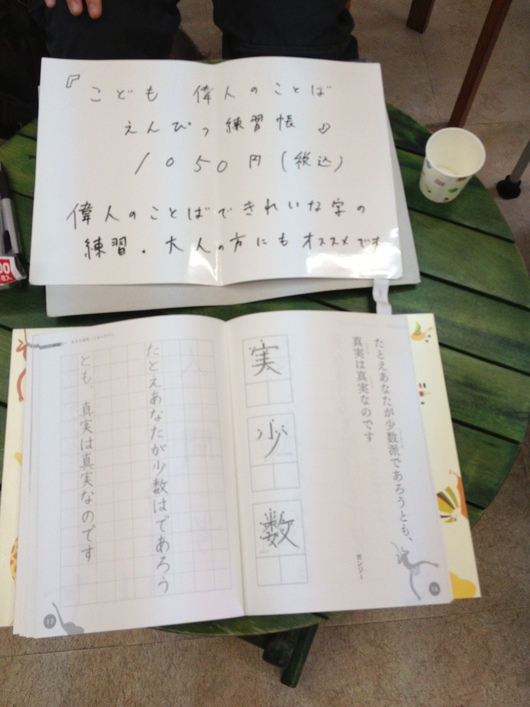 『こども 偉人のことば
えんぴつ練習帳』
1050円(税込)
偉人のことばできれいな字の
練習。大人の方にもオススメです
たとえあなたが少数派であろうとも、
真実は真実なのです
ガンジー
実
少
数
16
たとえあなたが少数はであろう
とも、真実は真実なのです
17
00